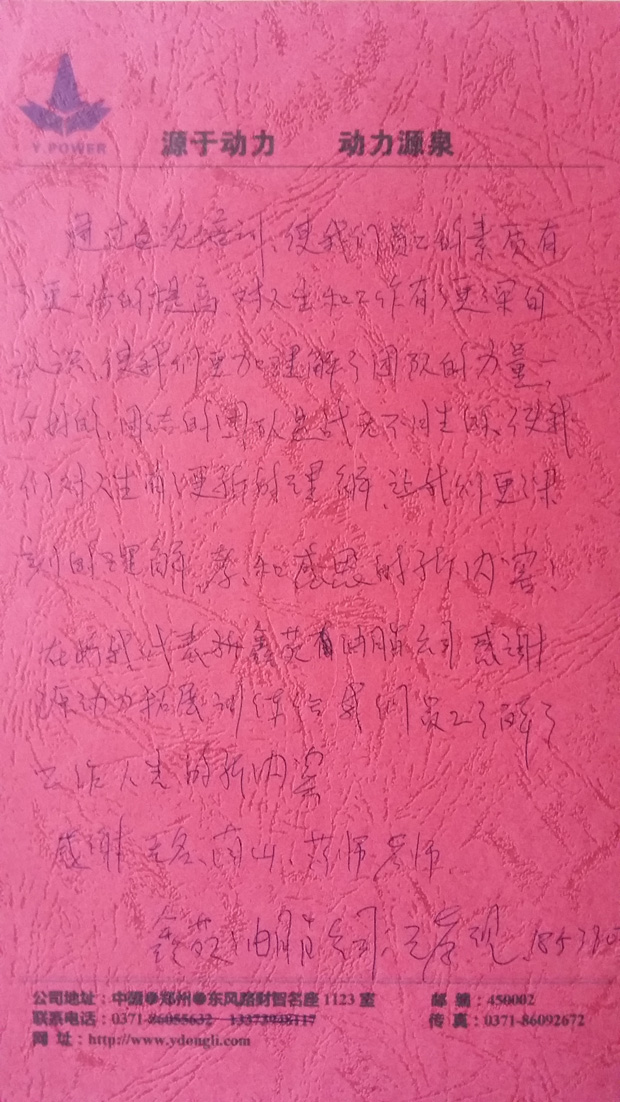 Y.POWER
源于动力 动力源泉
通过这次培训、使我们员工的素质有
了更一步的提高 对人生和工作有了更深的
认识、使我们更加理解了团队的力量,一
个好的、团结的团队是战无不胜的、使我
们对人生有了更新的理解、让我们更深
刻的理解 孝 和 感恩的新内容!
在此我代表 鑫苑 公司 感谢
源动力拓展训练给我们员工了解了
工作人生的新内容
感谢 老师
鑫苑 公司: 18537
公司地址:中国●郑州●东风路财智名座1123室 邮 编:450002
联系电话:0371-86055632 传 真:0371-86092672
网 址:http://www.ydongli.com